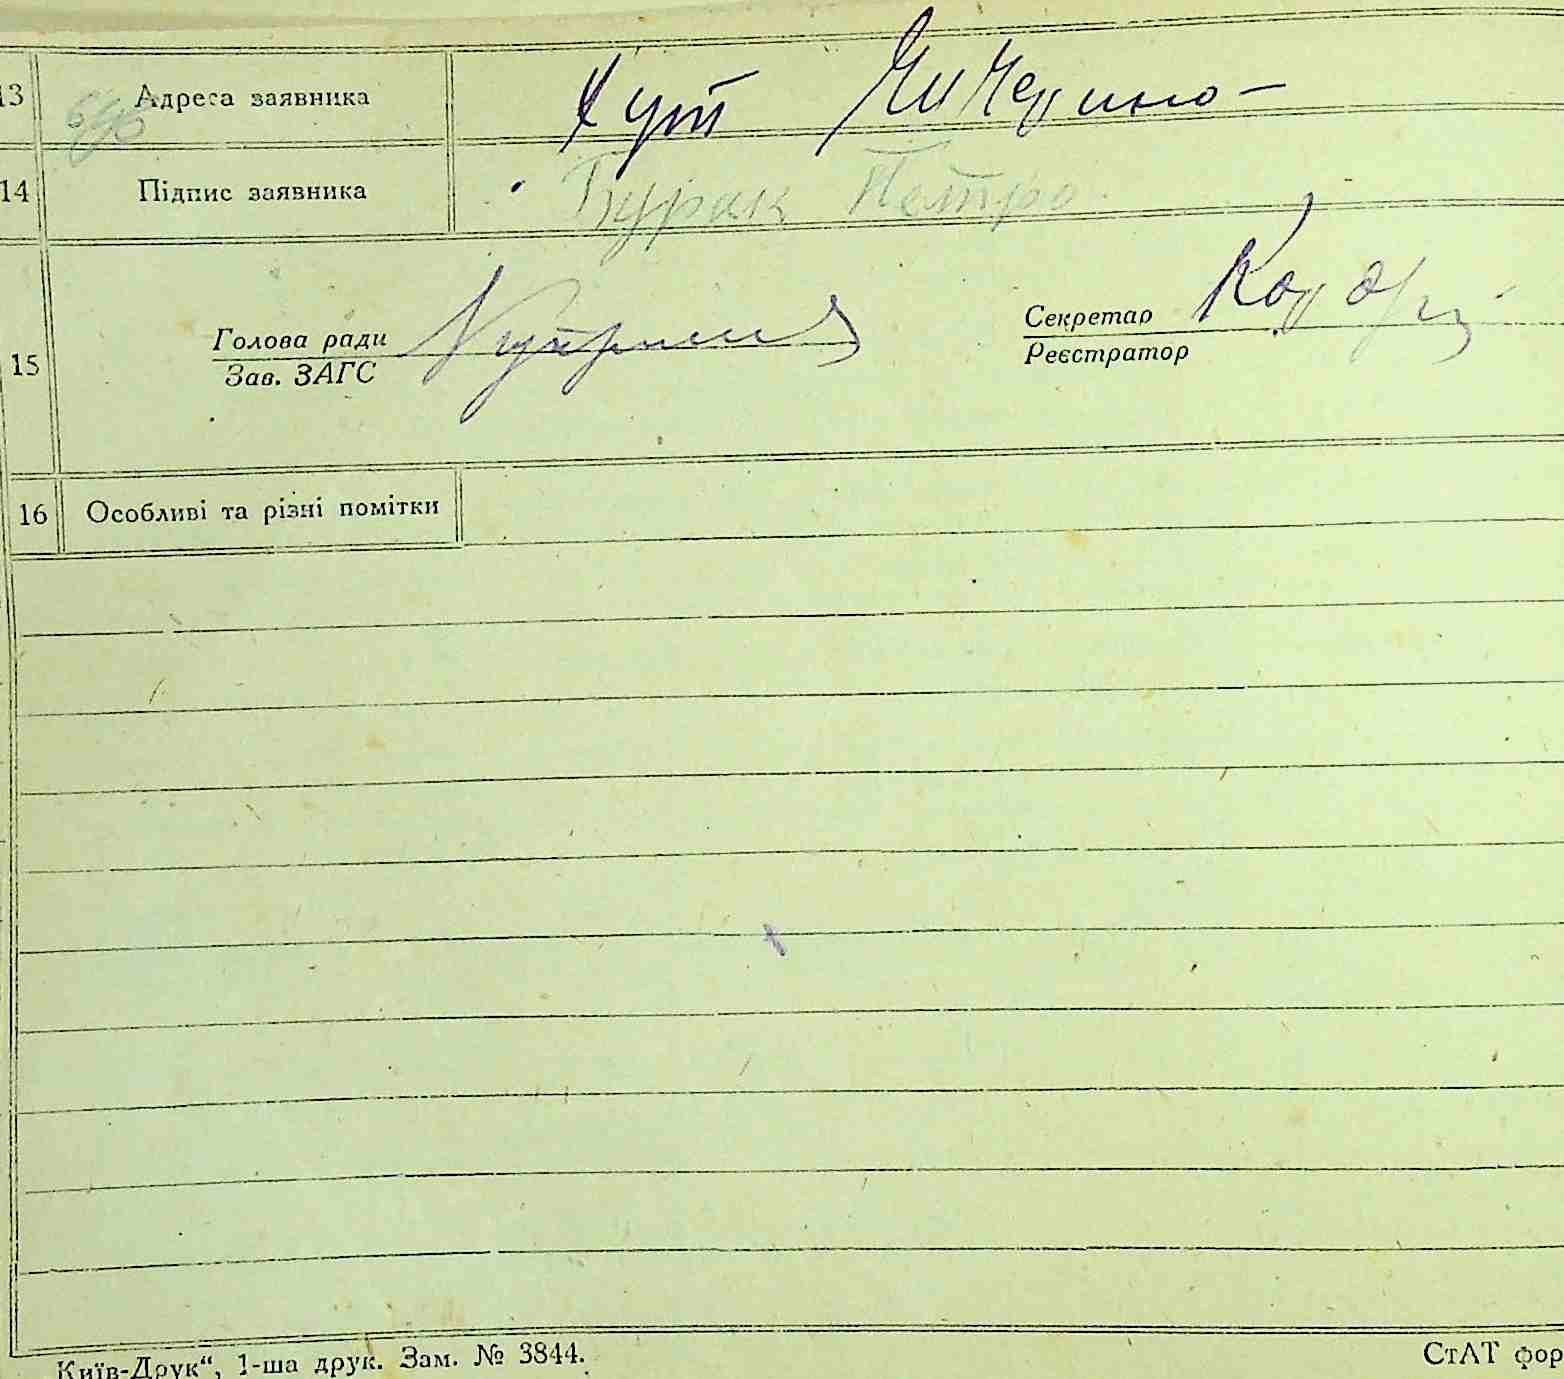 13 Адреса заявника Хут Чичерино-
14 Підпис заявника Бурак Петро.
Голова ради Секретар
15 Зав. ЗАГС Реєстратор
16 Особливі та різні помітки
Київ-Друк“, 1-ша друк. Зам. № 3844. СтАТ фор